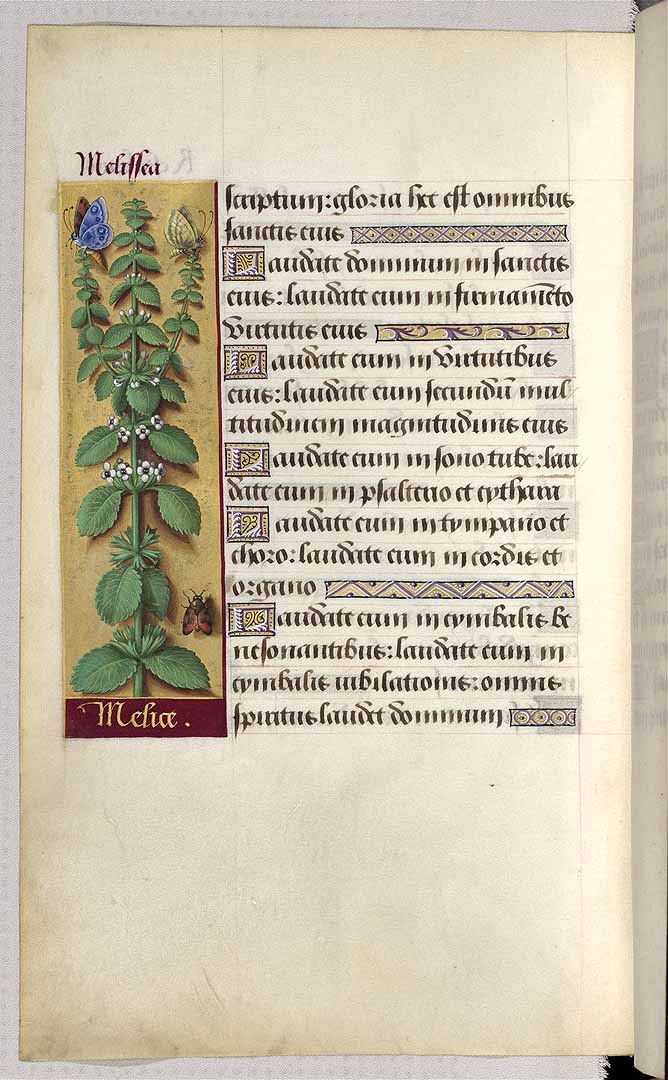 Melissea
scriptum: gloria hec est omnibus
sanctis eius
Laudate dominum in sanctis
eius: laudate eum in firmamēto
virtutis eius
Laudate eum in virtutibus
eius: laudate eum secundū mul
titudinem magnitudinis eius
Laudate eum in sono tube: lau
date eum in psalterio et cythara
Laudate eum in tympano et
choro: laudate eum in cordis et
organo
Laudate eum in cymbalis be
nesonantibus: laudate eum in
cymbalis iubilationis: omnis
spiritus laudet dominum
Melice.